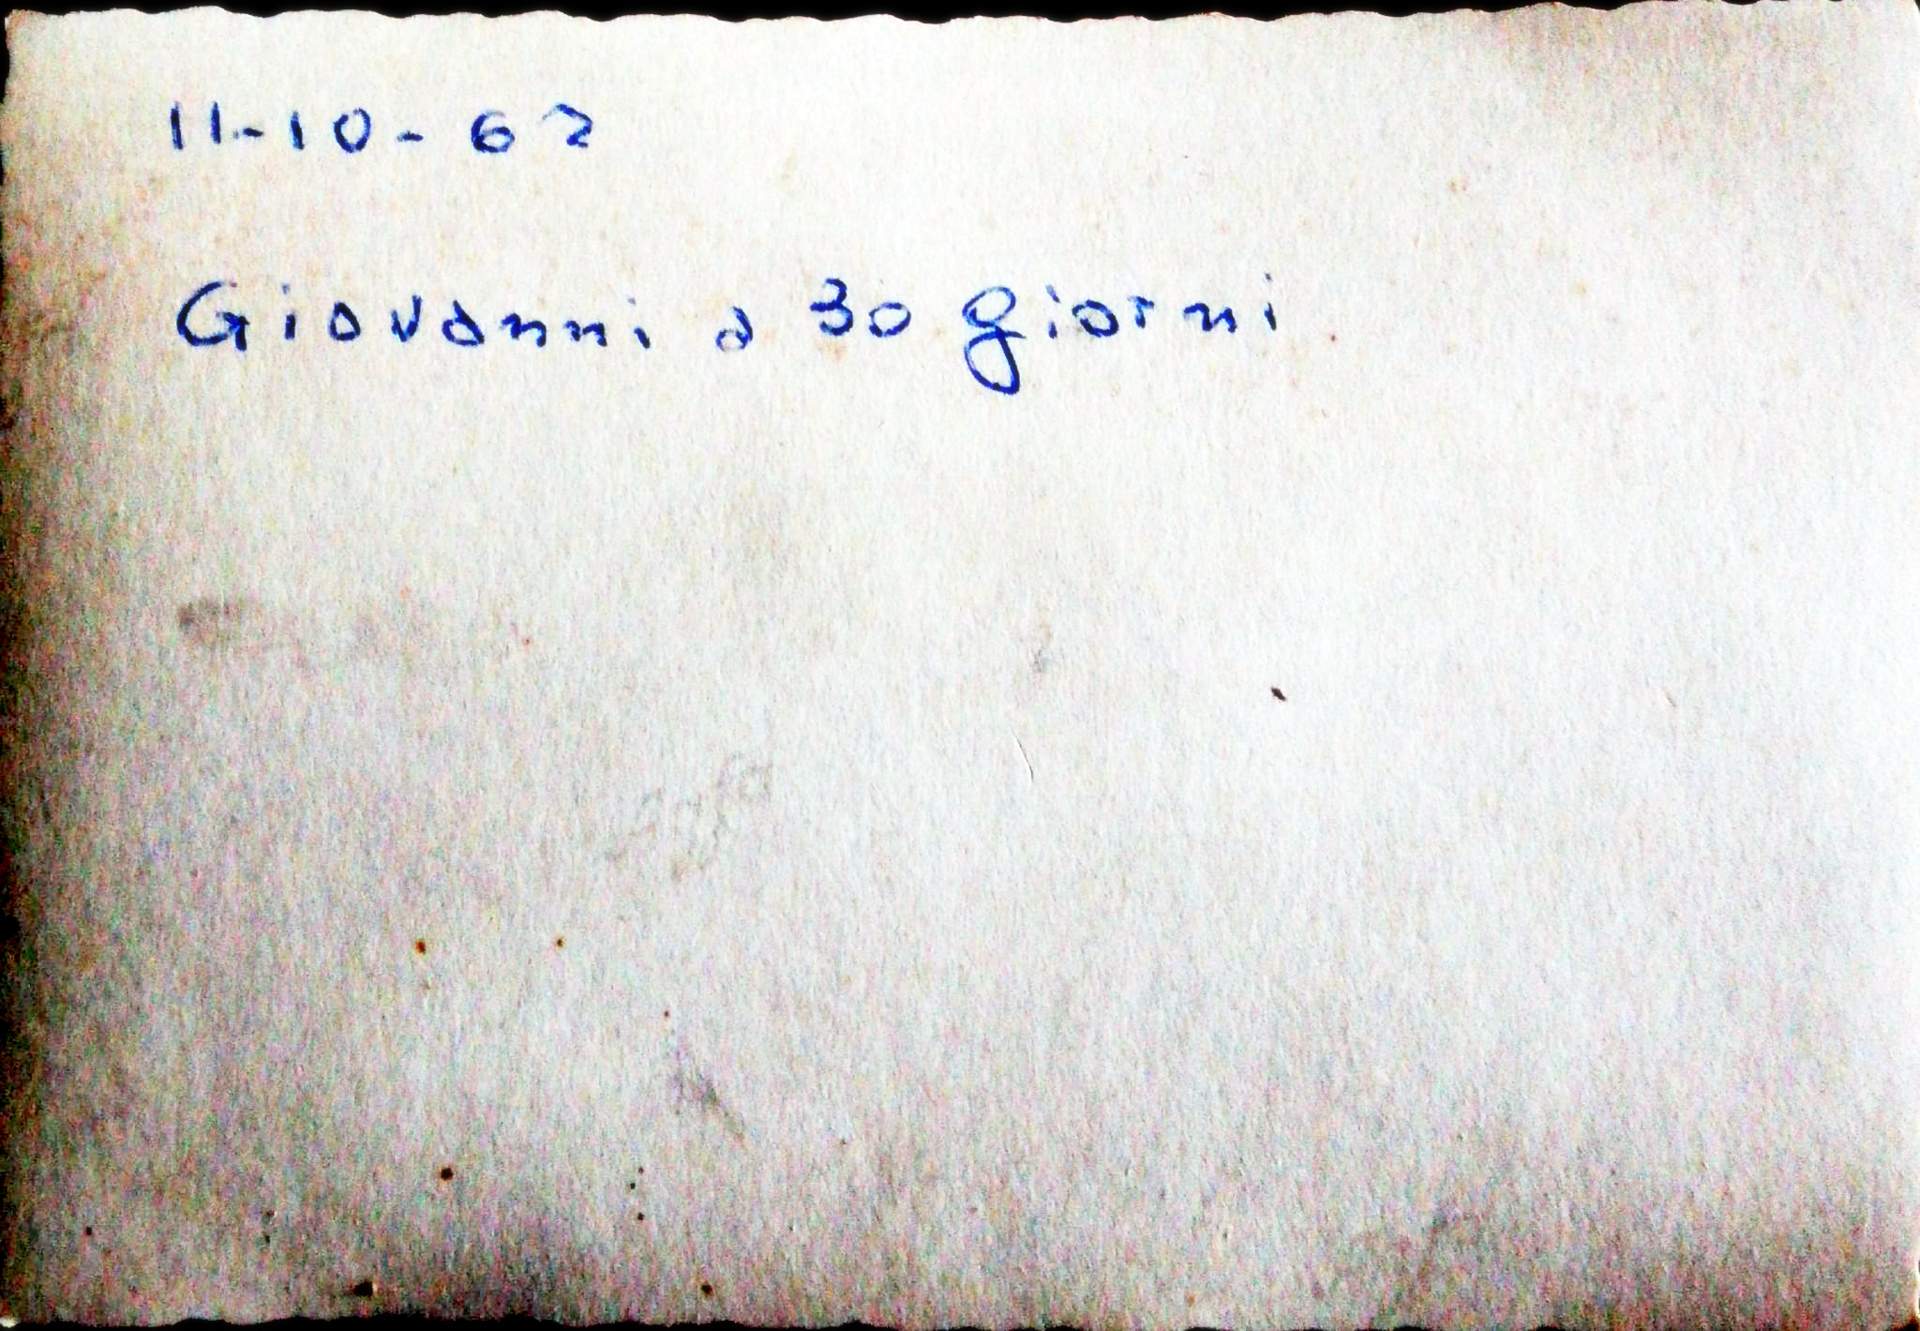 11-10-62
Giovanni a 30 giorni